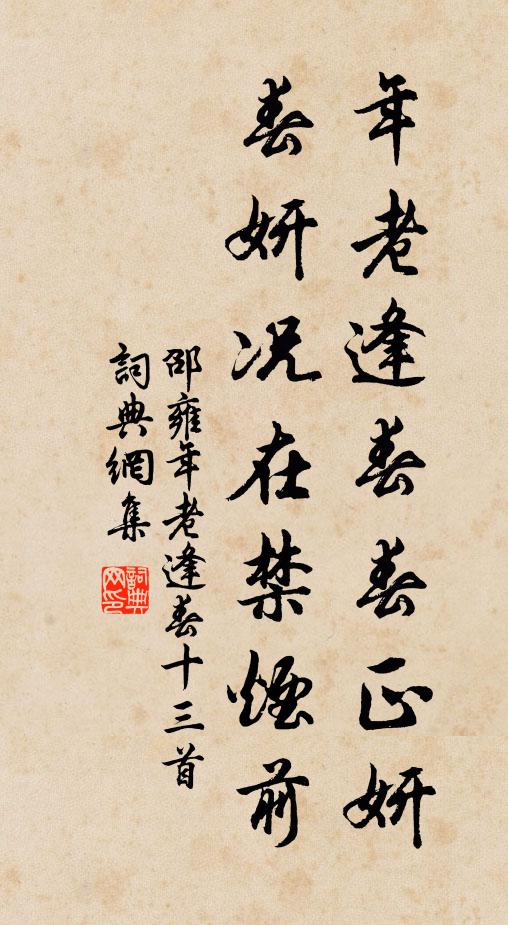 年老逢春春正妍
春妍况在禁煙前
邵雍年老逢春十三首
詞典網集
詞典网印